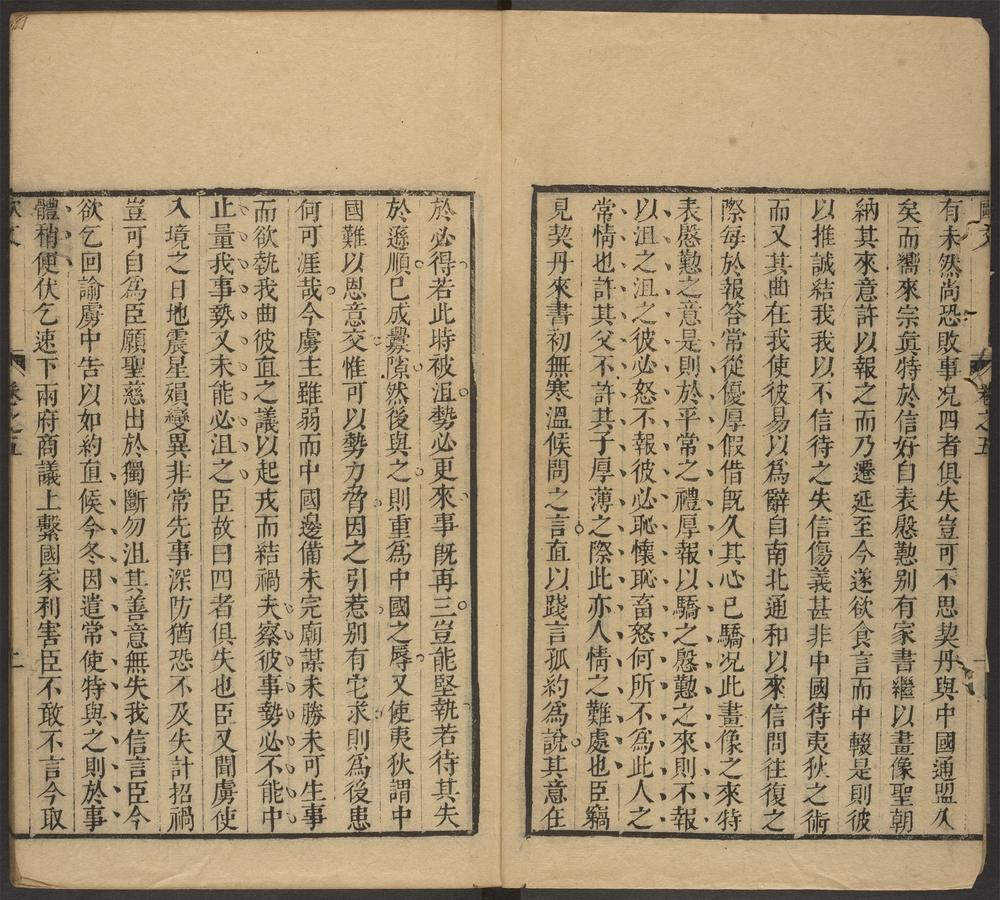 有未然尚恐敗事况四者俱失豈可不思契丹與中國通盟久
矣而嚮來宗眞特於信好自表慇懃别有家書繼以畫像聖朝
納其來意許以報之而乃遷延至今遂欲食言而中輟是則彼
以推誠結我我以不信待之失信傷義甚非中國待夷狄之術
而又其曲在我使彼易以爲辭自南北通和以來信問往復之
際每於報答常從優厚假借旣久其心已驕况此畫像之來特
表慇懃之意是則於平常之禮厚報以驕之慇懃之來則不報
以沮之沮之彼必怒不報彼必恥懷恥畜怒何所不爲此人之
常情也許其父不許其子厚薄之際此亦人情之難處也臣竊
見契丹來書初無寒溫候問之言直以踐言孤約爲說其意在
卷之五
於必得若此時被沮勢必更來事旣再三豈能堅執若待其失
於遜順已成釁隙然後與之則重爲中國之辱又使夷狄謂中
國難以恩意交惟可以勢力脅因之引惹别有宅求則爲後患
何可涯哉今虜主雖弱而中國邊備未完廟謀未勝未可生事
而欲執我曲彼直之議以起戎而結禍夫察彼事勢必不能中
止量我事勢又未能必沮之臣故曰四者俱失也臣又聞虜使
入境之日地震星殞變異非常先事深防猶恐不及失計招禍
豈可自爲臣願聖慈出於獨斷勿沮其善意無失我信言臣今
欲乞回諭虜中告以如約直候今冬因遣常使特與之則於事
體稍便伏乞速下兩府商議上繫國家利害臣不敢不言今取
卷之五
二